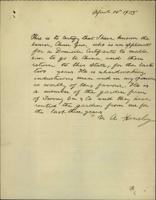 April 10th 1905
This is to certify that I have known the
bearer, Chun Gee, who is an applicant
for a Domicile Certificate to enable
him to go to China and then
return to this State, for the last
two years. He is a hardworking
industrious man and in my opinion
is worthy of this favour. He is
a member of the garden firm
of and Co and they have
rented the garden from me for
the last three years